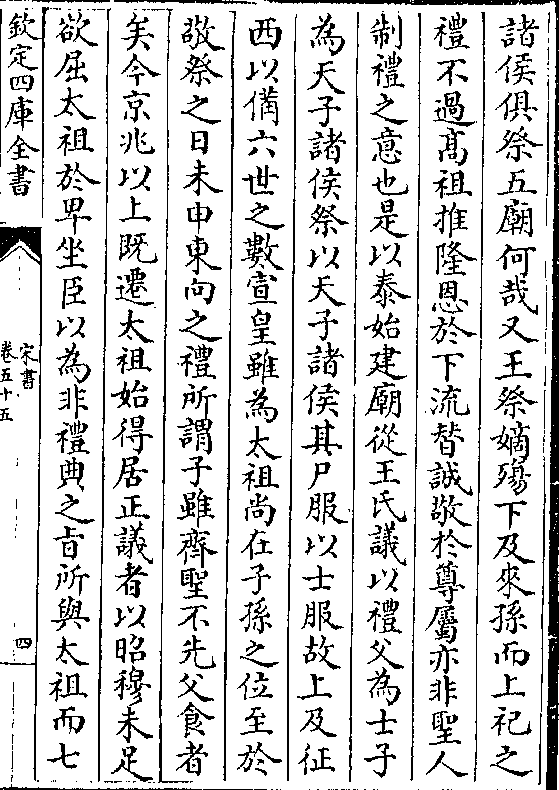 諸侯俱祭五廟何哉又王祭嫡殤下及來孫而上祀之
禮不過髙祖推隆恩於下流替誠敬於尊屬亦非聖人
制禮之意也是以泰始建廟從王氏議以禮父為士子
為天子諸侯祭以天子諸侯其尸服以士服故上及征
西以備六世之數宣皇雖為太祖尚在子孫之位至於
敬祭之日未申東向之禮所謂子雖齊聖不先父食者
矣今京兆以上既遷太祖始得居正議者以昭穆未足
欲屈太祖於卑坐臣以為非禮典之㫖所與太祖而七
欽定四庫全書
宋書
卷五十五
四